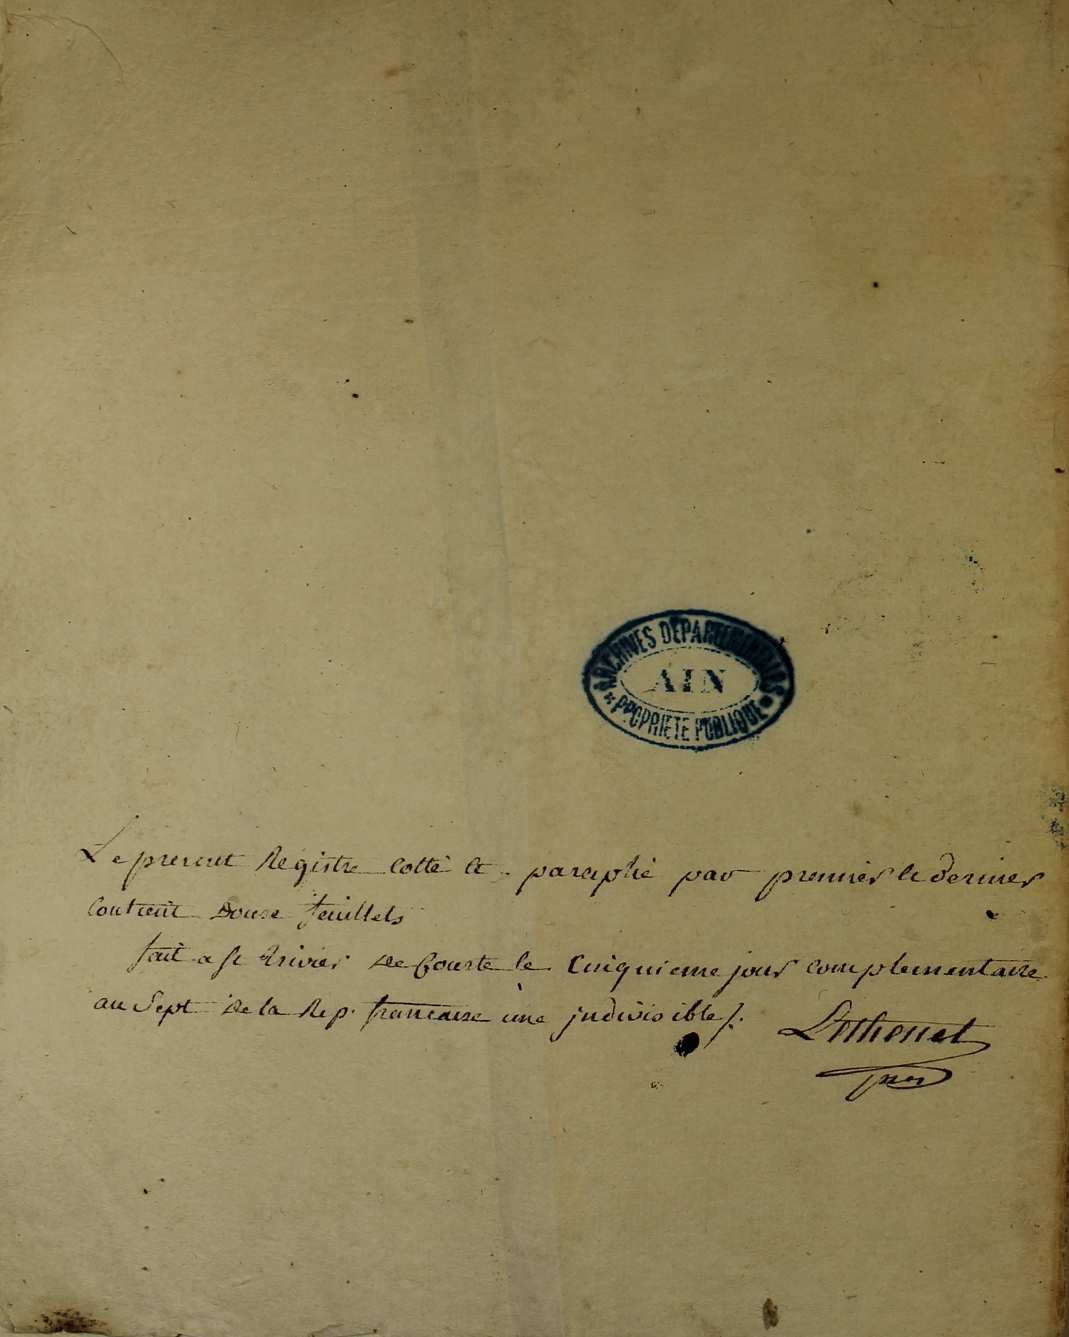 ARCHIVES DÉPARTEMENTALES
AIN
* PROPRIÉTÉ PUBLIQUE *
Le present Registre cotté et paraphé par premier et dernier
contient douse feuillets
fait a St trivier de Courte le Cinquieme jour complementaire
au Sept de la Rep. francaise une indivisible /.